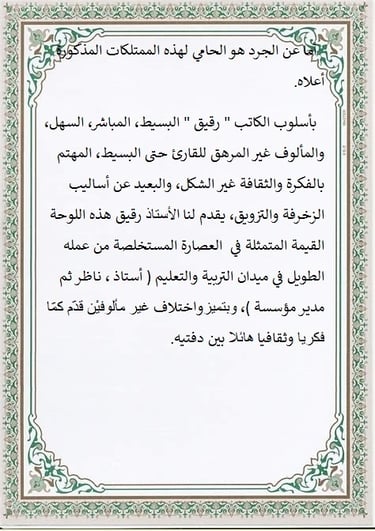 أما عن الجرد هو الحامي لهذه الممتلكات المذكورة
أعلاه.
بأسلوب الكاتب " رقيق " البسيط، المباشر، السهل،
والمألوف غير المرهق للقارئ حتى البسيط، المهتم
بالفكرة والثقافة غير الشكل، والبعيد عن أساليب
الزخرفة والتزويق، يقدم لنا الأستاذ رقيق هذه اللوحة
القيمة المتمثلة في العصارة المستخلصة من عمله
الطويل في ميدان التربية والتعليم ( أستاذ ، ناظر ثم
مدير مؤسسة )، وبتميز واختلاف غير مألوفيْن قدّم كمّا
فكريا وثقافيا هائلا بين دفتيه.